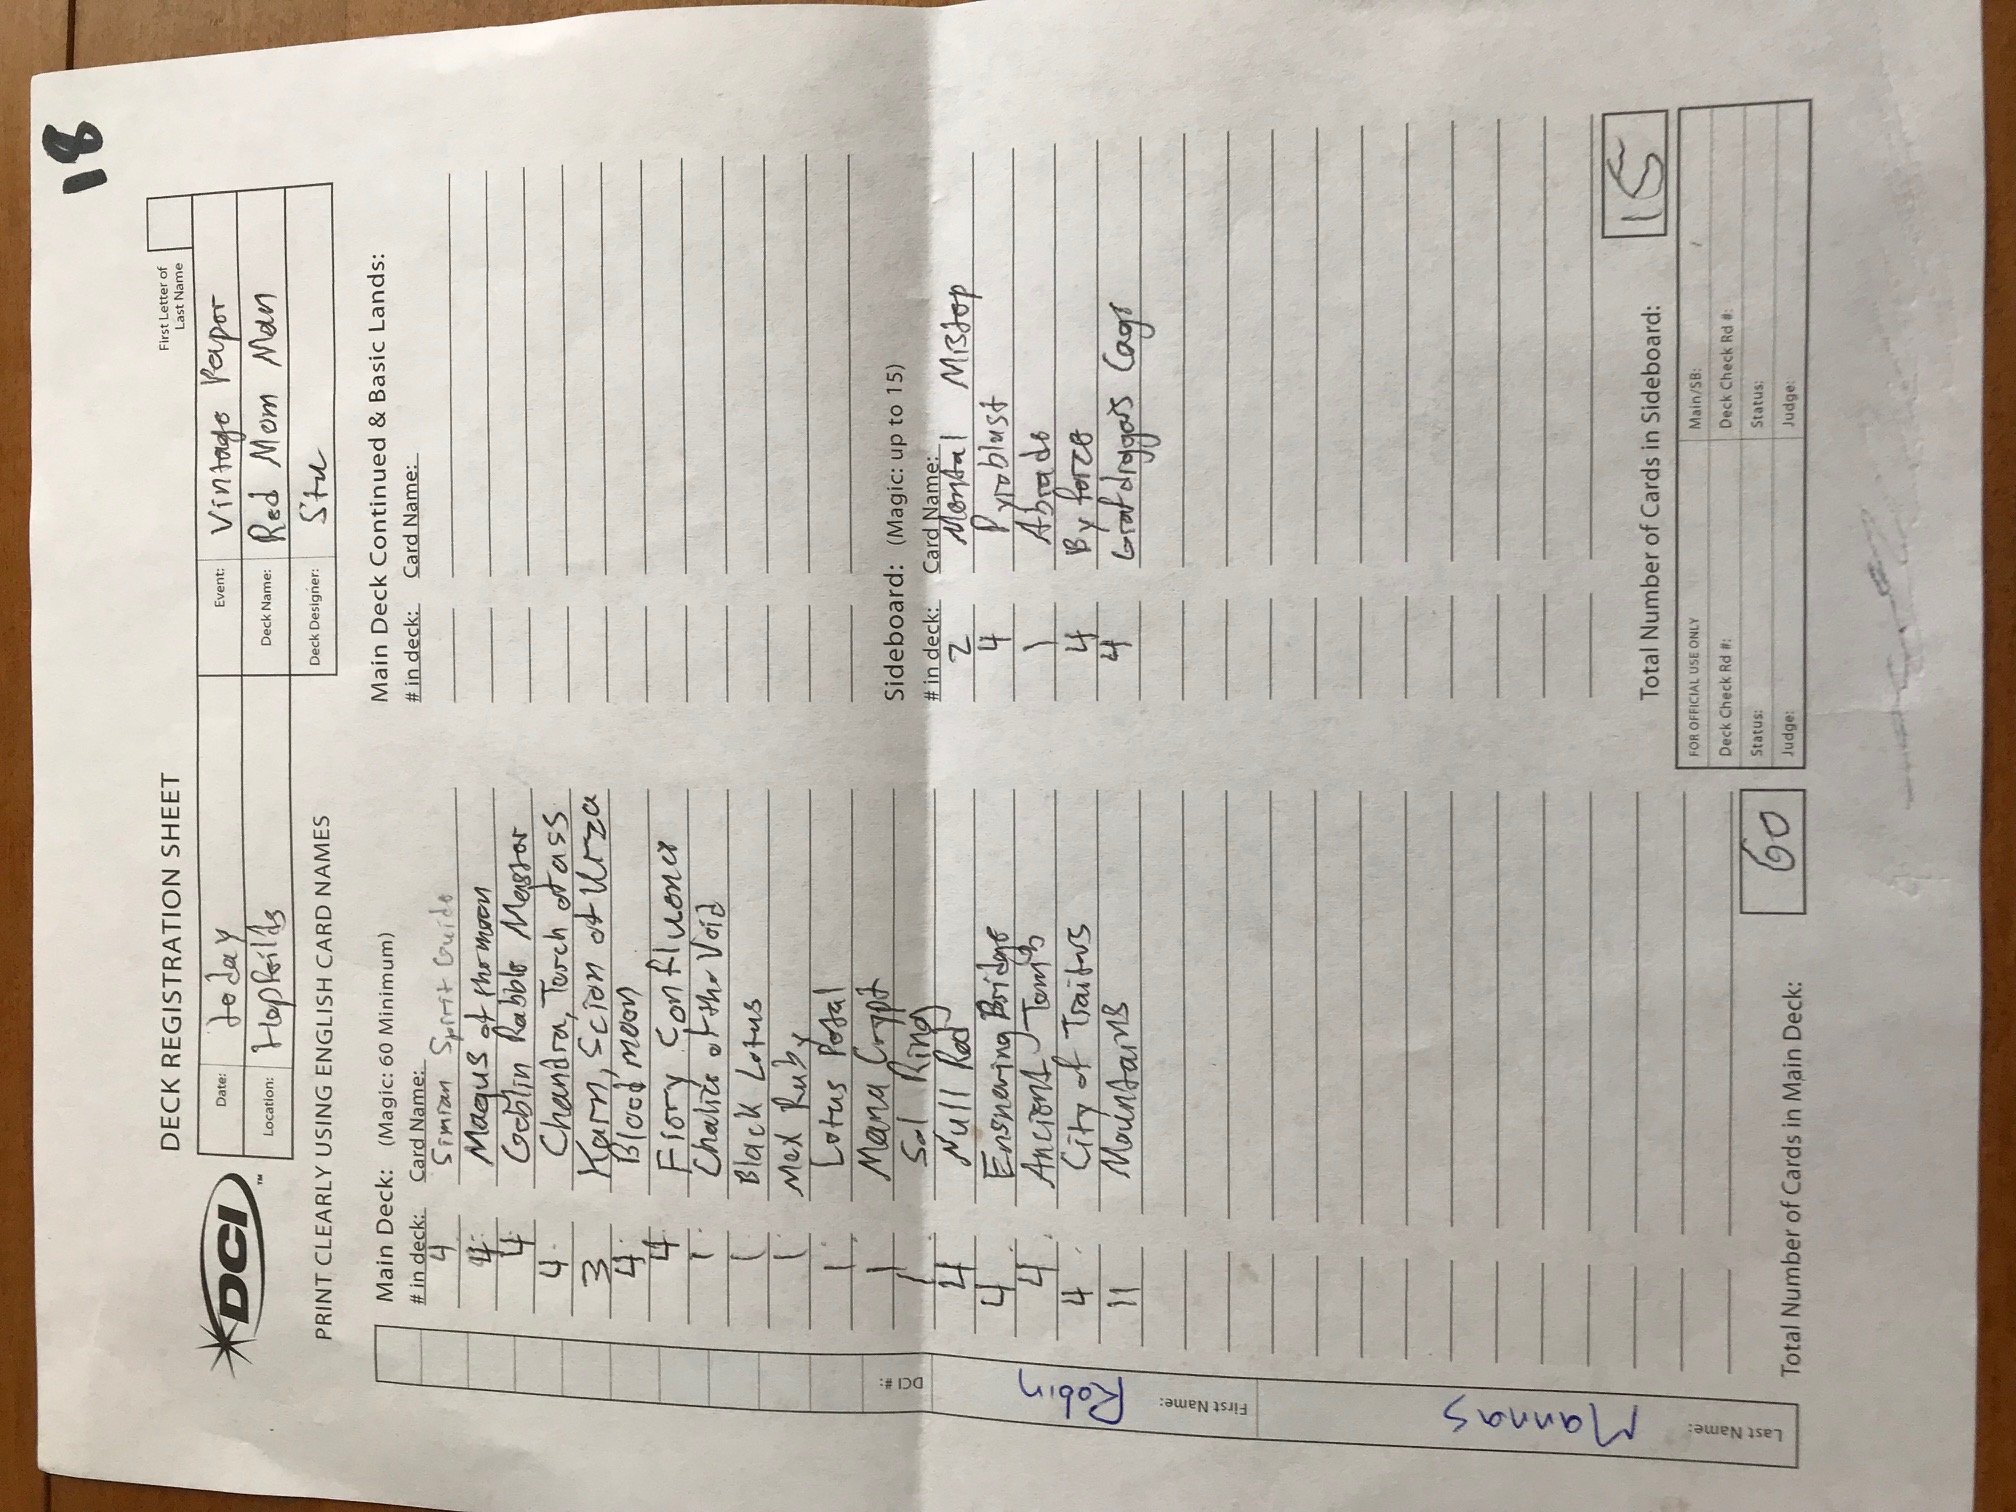 18
DECK REGISTRATION SHEET
First Letter of
Last Name
DCI
TM
Date: today
Event: Vintage Paper
Location:
Deck Name: Red Mom Man
Deck Designer: Stu
PRINT CLEARLY USING ENGLISH CARD NAMES
Main Deck: (Magic: 60 Minimum)
# in deck: Card Name:
4 Simian Spirit Guide
4 Magus of the moon
4 Goblin Rabble Master
4 Chandra, Torch of ass
3 Karn, Scion of Urza
4 Blood moon
4 Fiery Confluence
1 Chalice of the Void
1 Black Lotus
1 Mox Ruby
1 Lotus Petal
1 Mana Crypt
1 Sol Ring
4 Null Rod
4 Ensnaring Bridge
4 Ancient Tomb
4 City of Traitors
11 Mountains
Total Number of Cards in Main Deck: 60
Main Deck Continued & Basic Lands:
# in deck: Card Name:
Sideboard: (Magic: up to 15)
# in deck: Card Name:
2 Mental Mistep
4 Pyroblast
1 Abrade
4 By force
4 Grafdiggers Cage
Total Number of Cards in Sideboard: 15
FOR OFFICIAL USE ONLY
Main/SB: /
Deck Check Rd #:
Deck Check Rd #:
Status:
Status:
Judge:
Judge:
DCI #:
First Name: Robin
Last Name: Mannas